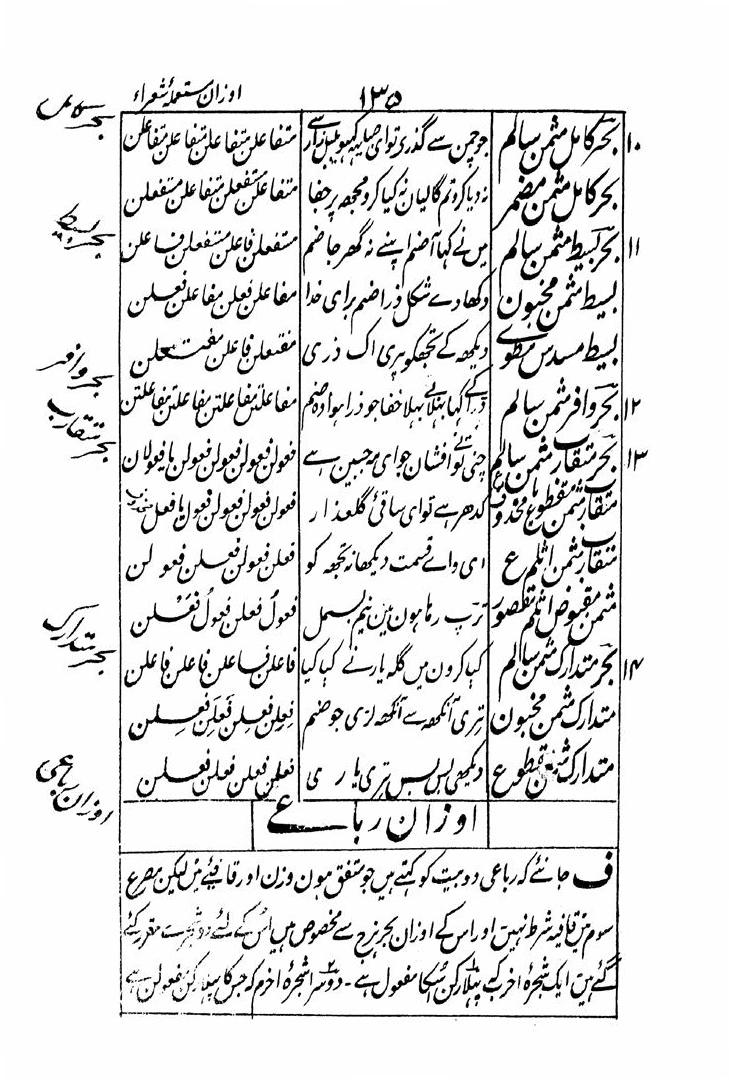 ۱۳۵ اوزان مستعملۂ شعراء
بحر کامل
۱۰ بحر کامل مثمن سالم جو چمن سے گذرے تو ای صبا یہ کہیو بلبل زار سے متفاعلن متفاعلن متفاعلن متفاعلن
بحر کامل مثمن مضمر نہ دیا کرو تم گالیاں نہ کیا کرو مجھہ پر جفا متفاعلن مستفعلن متفاعلن مستفعلن
بحر بسیط
۱۱ بحر بسیط مثمن سالم میں نے کہا آ صنم اپنے نہ گھر جا صنم مستفعلن فاعلن مستفعلن فاعلن
بسیط مثمن مخبون دکھا دے شکل ذرا صنم برای خدا مفاعلن فعلن مفاعلن فعلن
بسیط مسدس مطوے دیکھہ کے تجھکو پری اک ذری مفتعلن فاعلن مفتعلن
بحر وافر
۱۲ بحر وافر مثمن سالم کہا پہلے پہلا خفا جو ذرا ہوا وہ صنم مفاعلتن مفاعلتن مفاعلتن مفاعلتن
بحر متقارب
۱۳ بحر متقارب مثمن سالم چنی تو نے افشان جو ای مہ جبین ہے فعولن فعولن فعولن فعولن یا فعولان
متقارب مثمن مقطوع یا محذوف کدھر ہے تو ای ساقئ گلعذار فعولن فعولن فعولن فعول یا فعل محذوف
متقارب مثمن اثلم ع ای واے قسمت دیکھا نہ تجھہ کو فعلن فعولن فعلن فعولن
مثمن مقبوض اثلم مقصور تڑپ رہا ہون مین نیم بسمل فعول فعلن فعول فعلن
بحر متدارک
۱۴ بحر متدارک مثمن سالم کیا کرون میں گلہ یار نے کیا کیا فاعلن فاعلن فاعلن فاعلن
متدارک مثمن مخبون تری آنکھہ سے آنکھہ لڑی جو صنم فعلن فعلن فعلن فعلن
متدارک مثمن مقطوع دیکھی بس بس تیری یاری فعلن فعلن فعلن فعلن
اوزان رباعی
اوزان رباعے
ف جانئے کہ رباعی دو بیت کو کہتے ہیں جو متفق ہون وزن اور قافیئے میں لیکن مصرع
سوم میں قافیہ شرط نہیں اور اس کے اوزان بحر ہزج سے مخصوص ہیں اُس کے لئے دو شجرے مقرر کئے
گئے ہیں ایک شجرۂ اخرب کہ پہلا رکن اُسکا مفعول ہے۔ دوسرا شجرۂ اخرم کہ جس کا پہلا رکن مفعولن ہے